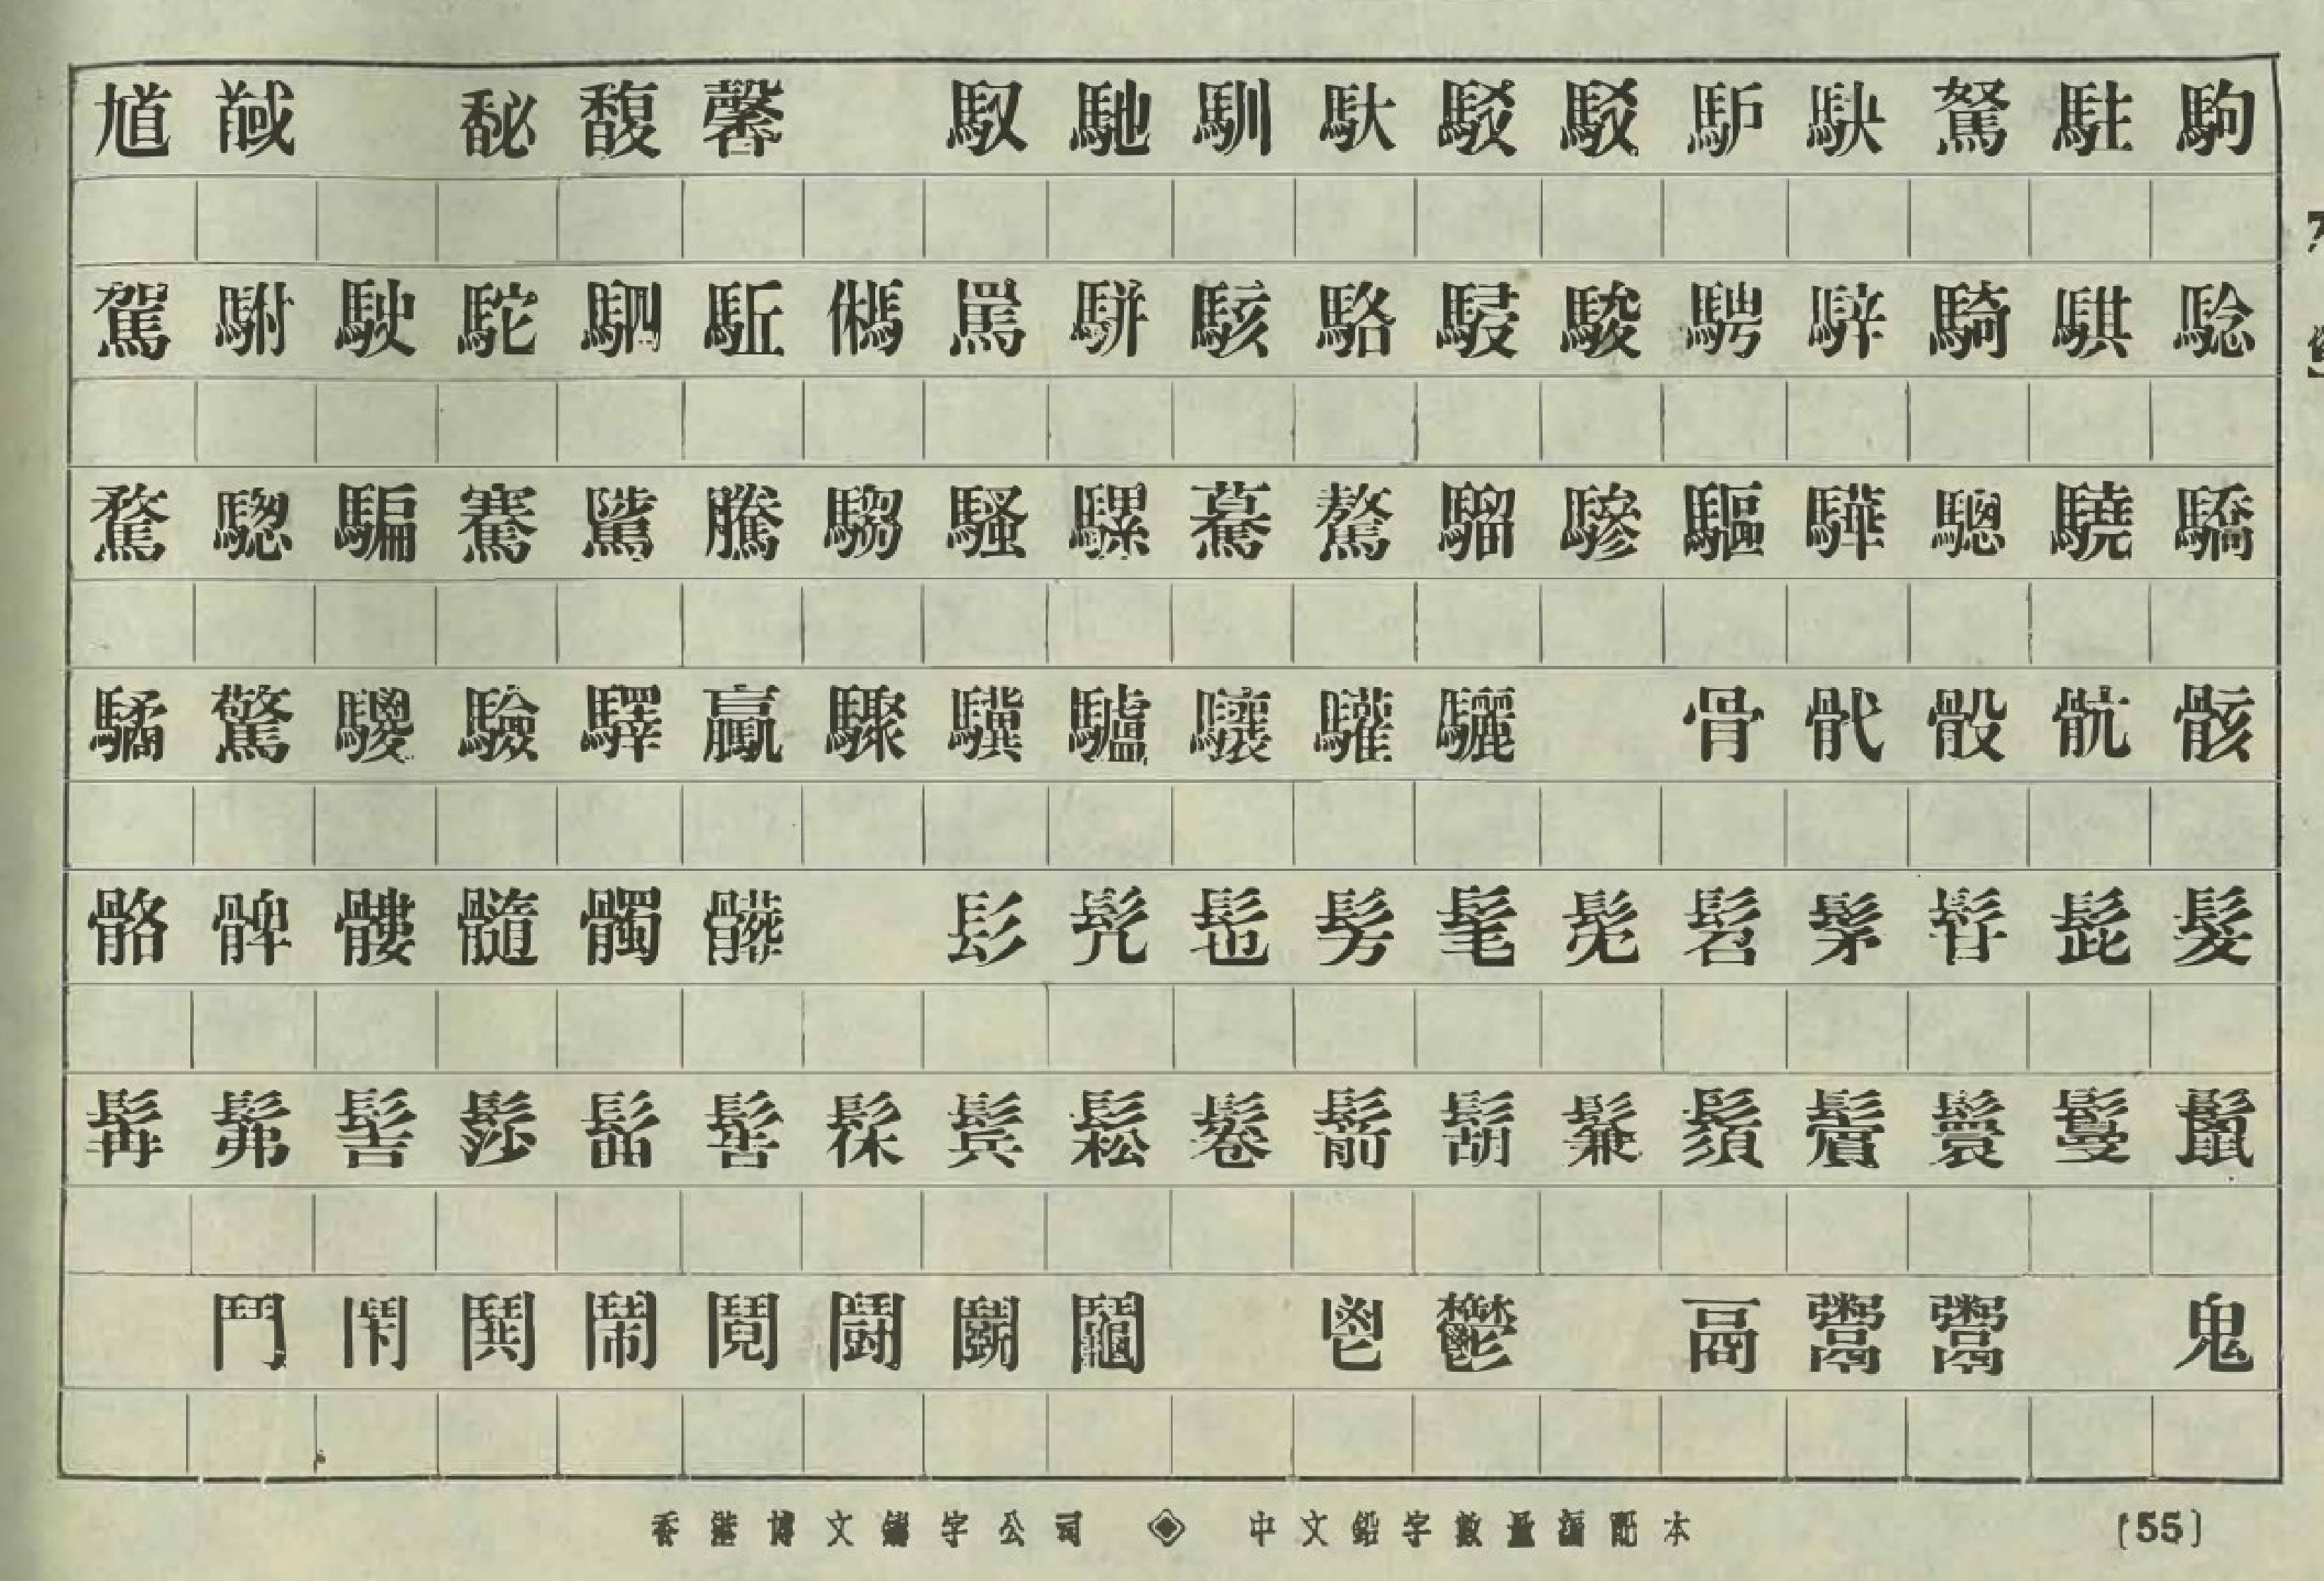 馗 馘 馝 馥 馨 馭 馳 馴 馱 駁 駁 馿 駃 駑 駐 駒
駕 駙 駛 駝 駟 駈 傌 罵 駢 駭 駱 駸 駿 騁 騂 騎 騏 騐
騖 騘 騙 騫 騭 騰 騶 騷 騾 驀 驁 騮 驂 驅 驊 驄 驍 驕
驈 驚 驟 驗 驛 驘 驟 驥 驢 驤 驩 驪 骨 骮 骰 骯 骸
骼 髀 髏 髓 髑 髒 髟 髡 髢 髣 髦 髡 髫 髳 髯 髭 髮
髯 髴 髻 髿 鬙 鬠 髹 鬂 鬆 鬈 鬋 鬍 鬑 鬚 鬢 鬟 鬘 鬣
鬥 鬦 鬨 鬧 鬩 鬪 鬭 鬮 鬯 鬱 鬲 鬻 鬻 鬼
香港博文鑄字公司 ◈ 中文鉛字數量調配本
〔55〕